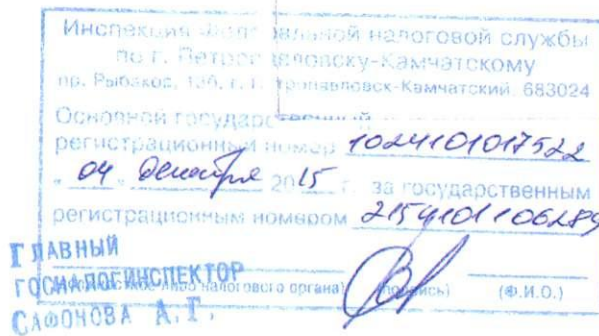 Инспекция Федеральной налоговой службы
по г. Петропавловску-Камчатскому
пр. Рыбаков, 13б, г. Петропавловск-Камчатский, 683024
Основной государственный
регистрационный номер 1024101017522
"04" декабря 2015 г. за государственным
регистрационным номером 2154101106289
ГЛАВНЫЙ
ГОСНАЛОГИНСПЕКТОР
налогового органа) (подпись) (Ф.И.О.)
САФОНОВА А.Г.